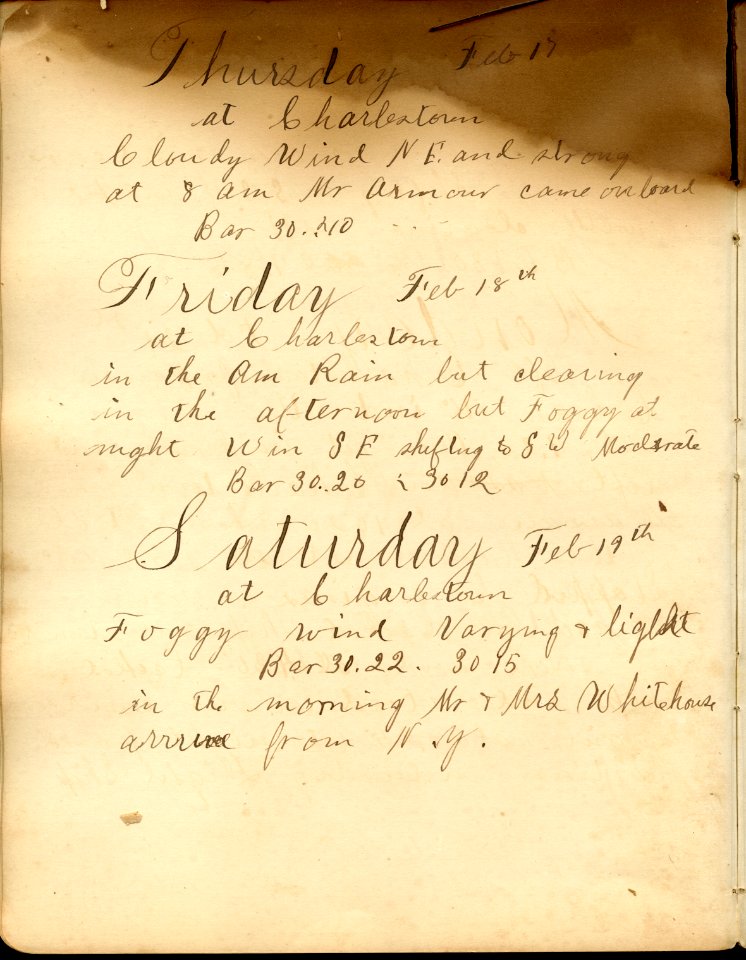 Thursday Feb 17
at Charlestown
Cloudy Wind N E. and strong
at 8 am Mr Armour came onboard
Bar 30.
Friday Feb 18th
at Charlestown
in the Am Rain but clearing
in the afternoon but Foggy at
night Win S E shifting to S W Moderate
Bar 30..20 30 12
Saturday Feb 19th
at Charlestown
Foggy wind Varying & light
Bar 30.22. 30 15
in the morning Mr & Mrs Whitehouse
arrive from N.Y.